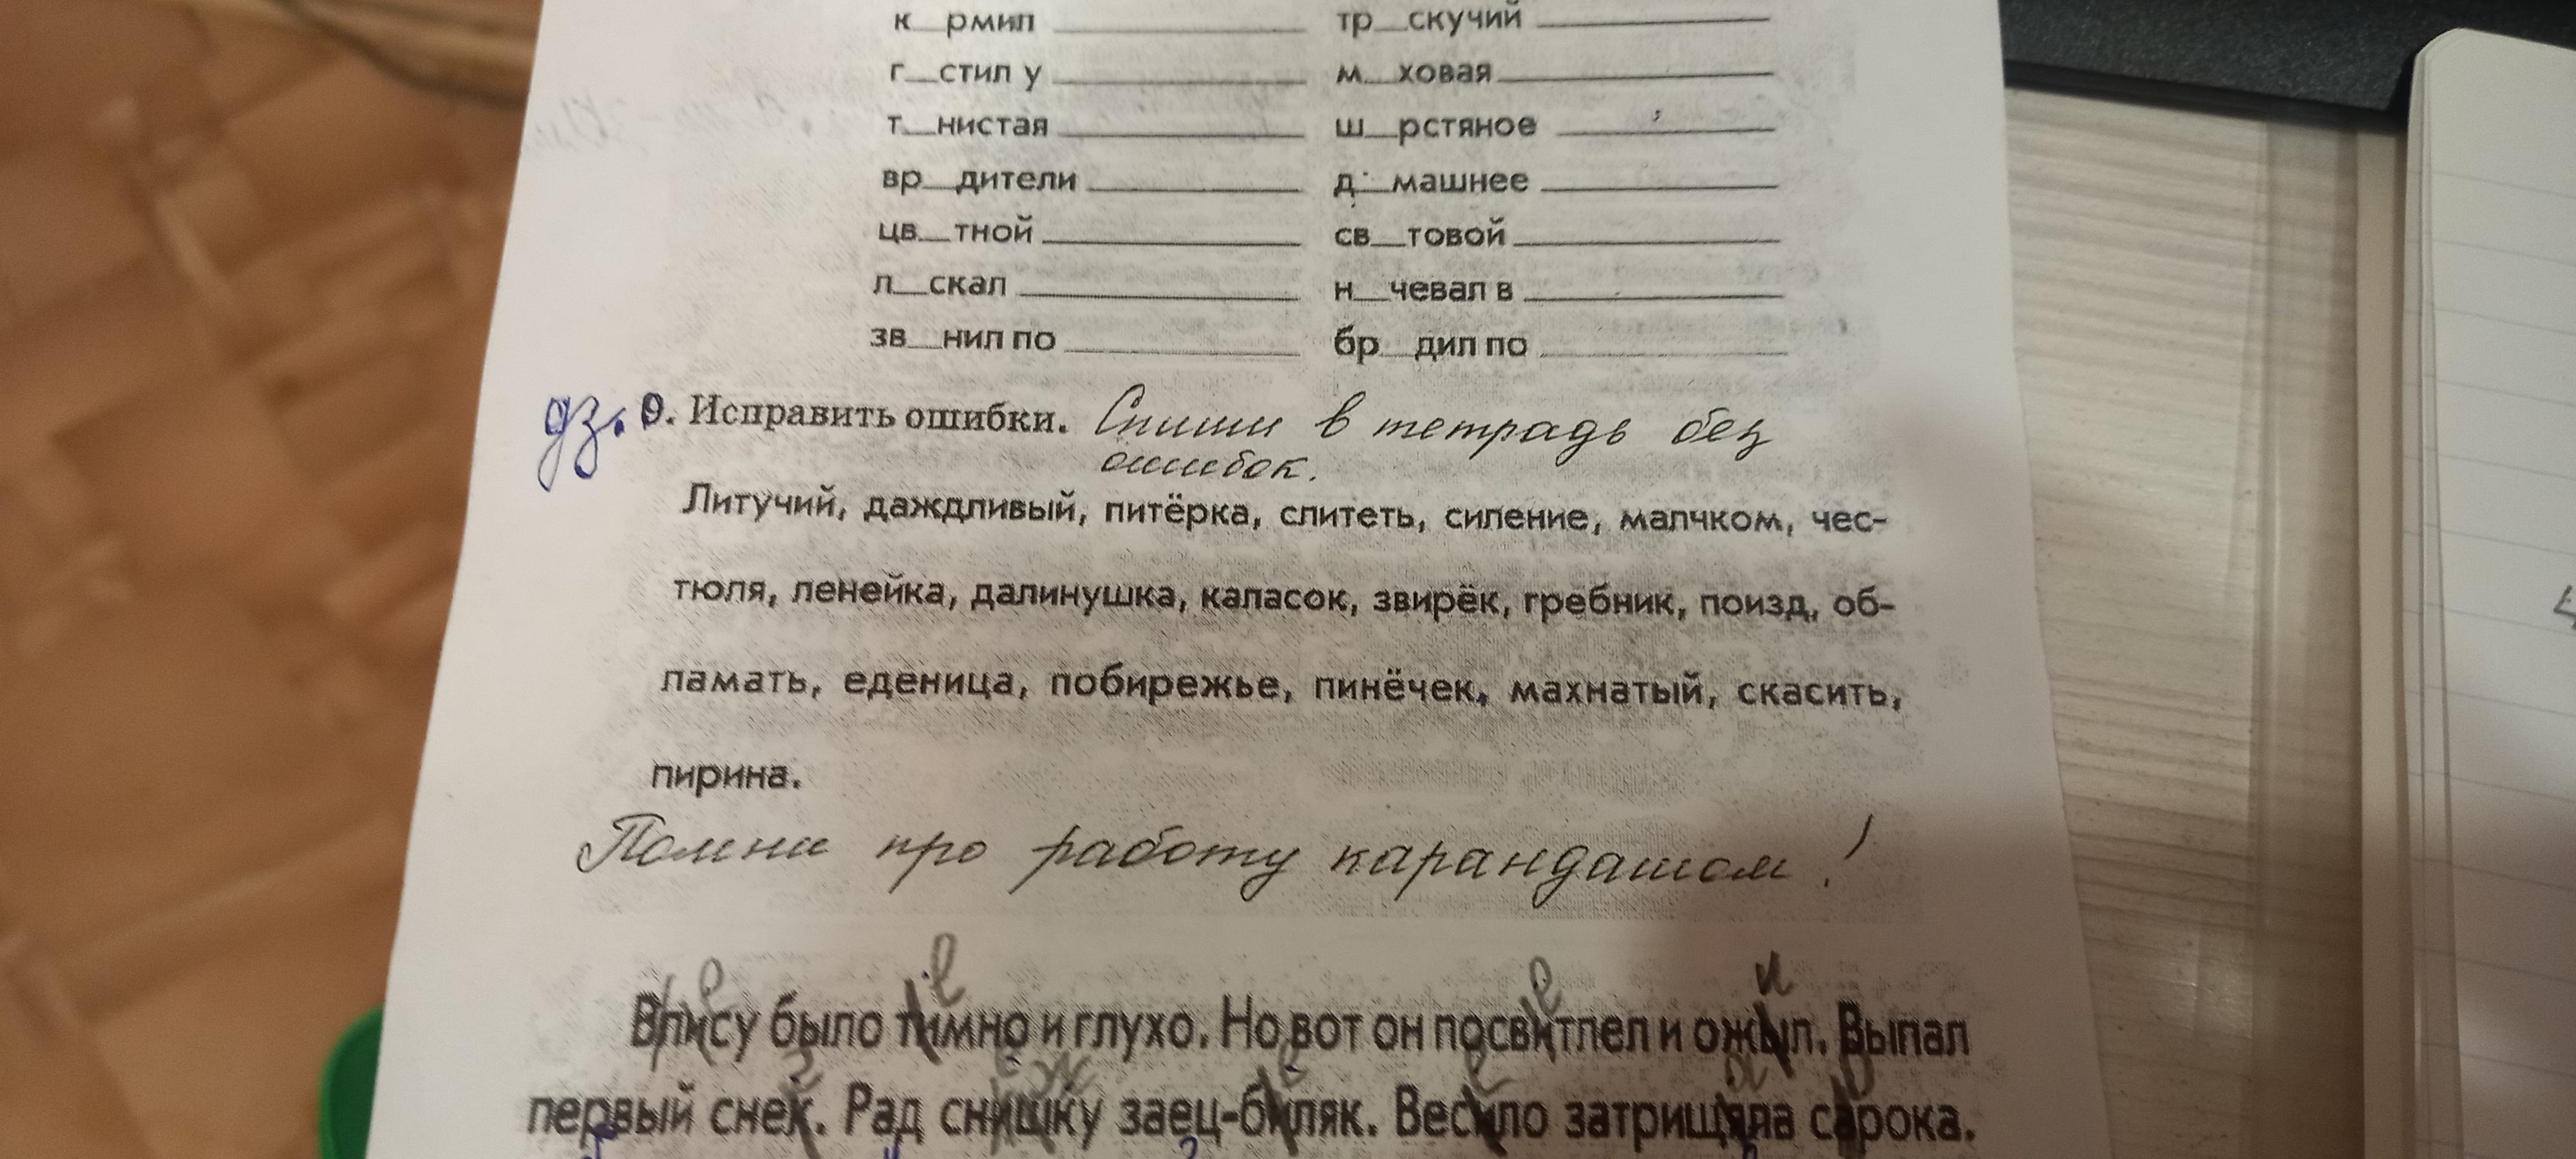 к__рмил ________ тр__скучий ________
г__стил у ________ м__ховая ________
т__нистая ________ ш__рстяное ________
вр__дители ________ д__машнее ________
цв__тной ________ св__товой ________
л__скал ________ н__чевал в ________
зв__нил по ________ бр__дил по ________
дз. 9. Исправить ошибки. Спиши в тетрадь без
ошибок.
Литучий, даждливый, питёрка, слитеть, силение, малчком, чес-
тюля, ленейка, далинушка, каласок, звирёк, гребник, поизд, об-
ламать, еденица, побирежье, пинёчек, махнатый, скасить,
пирина.
Помни про работу карандашом!
е е е и
Влису было тимно и глухо. Но вот он посвитлел и ожыл. Выпал
г е ж е е а о
первый снек. Рад снишку заец-биляк. Весило затрищяла сарока.